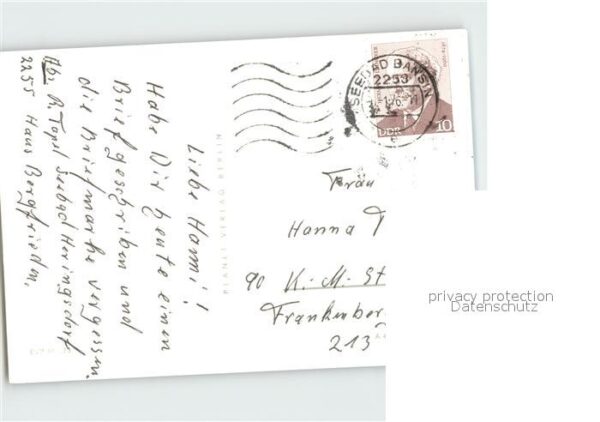 Liebe Hanni!
Habe Dir heute einen
Brief geschrieben und
die Briefmarke vergessen.
Ab. R. Topel Seebad Heringsdorf
2255 Haus Bergfrieden.
PLANET-VERLAG BERLIN
SEEBAD BANSIN
2253
DDR
10
Frau
Hanna T
90 K.-M.-St
Frankenber
213
privacy protection
Datenschutz